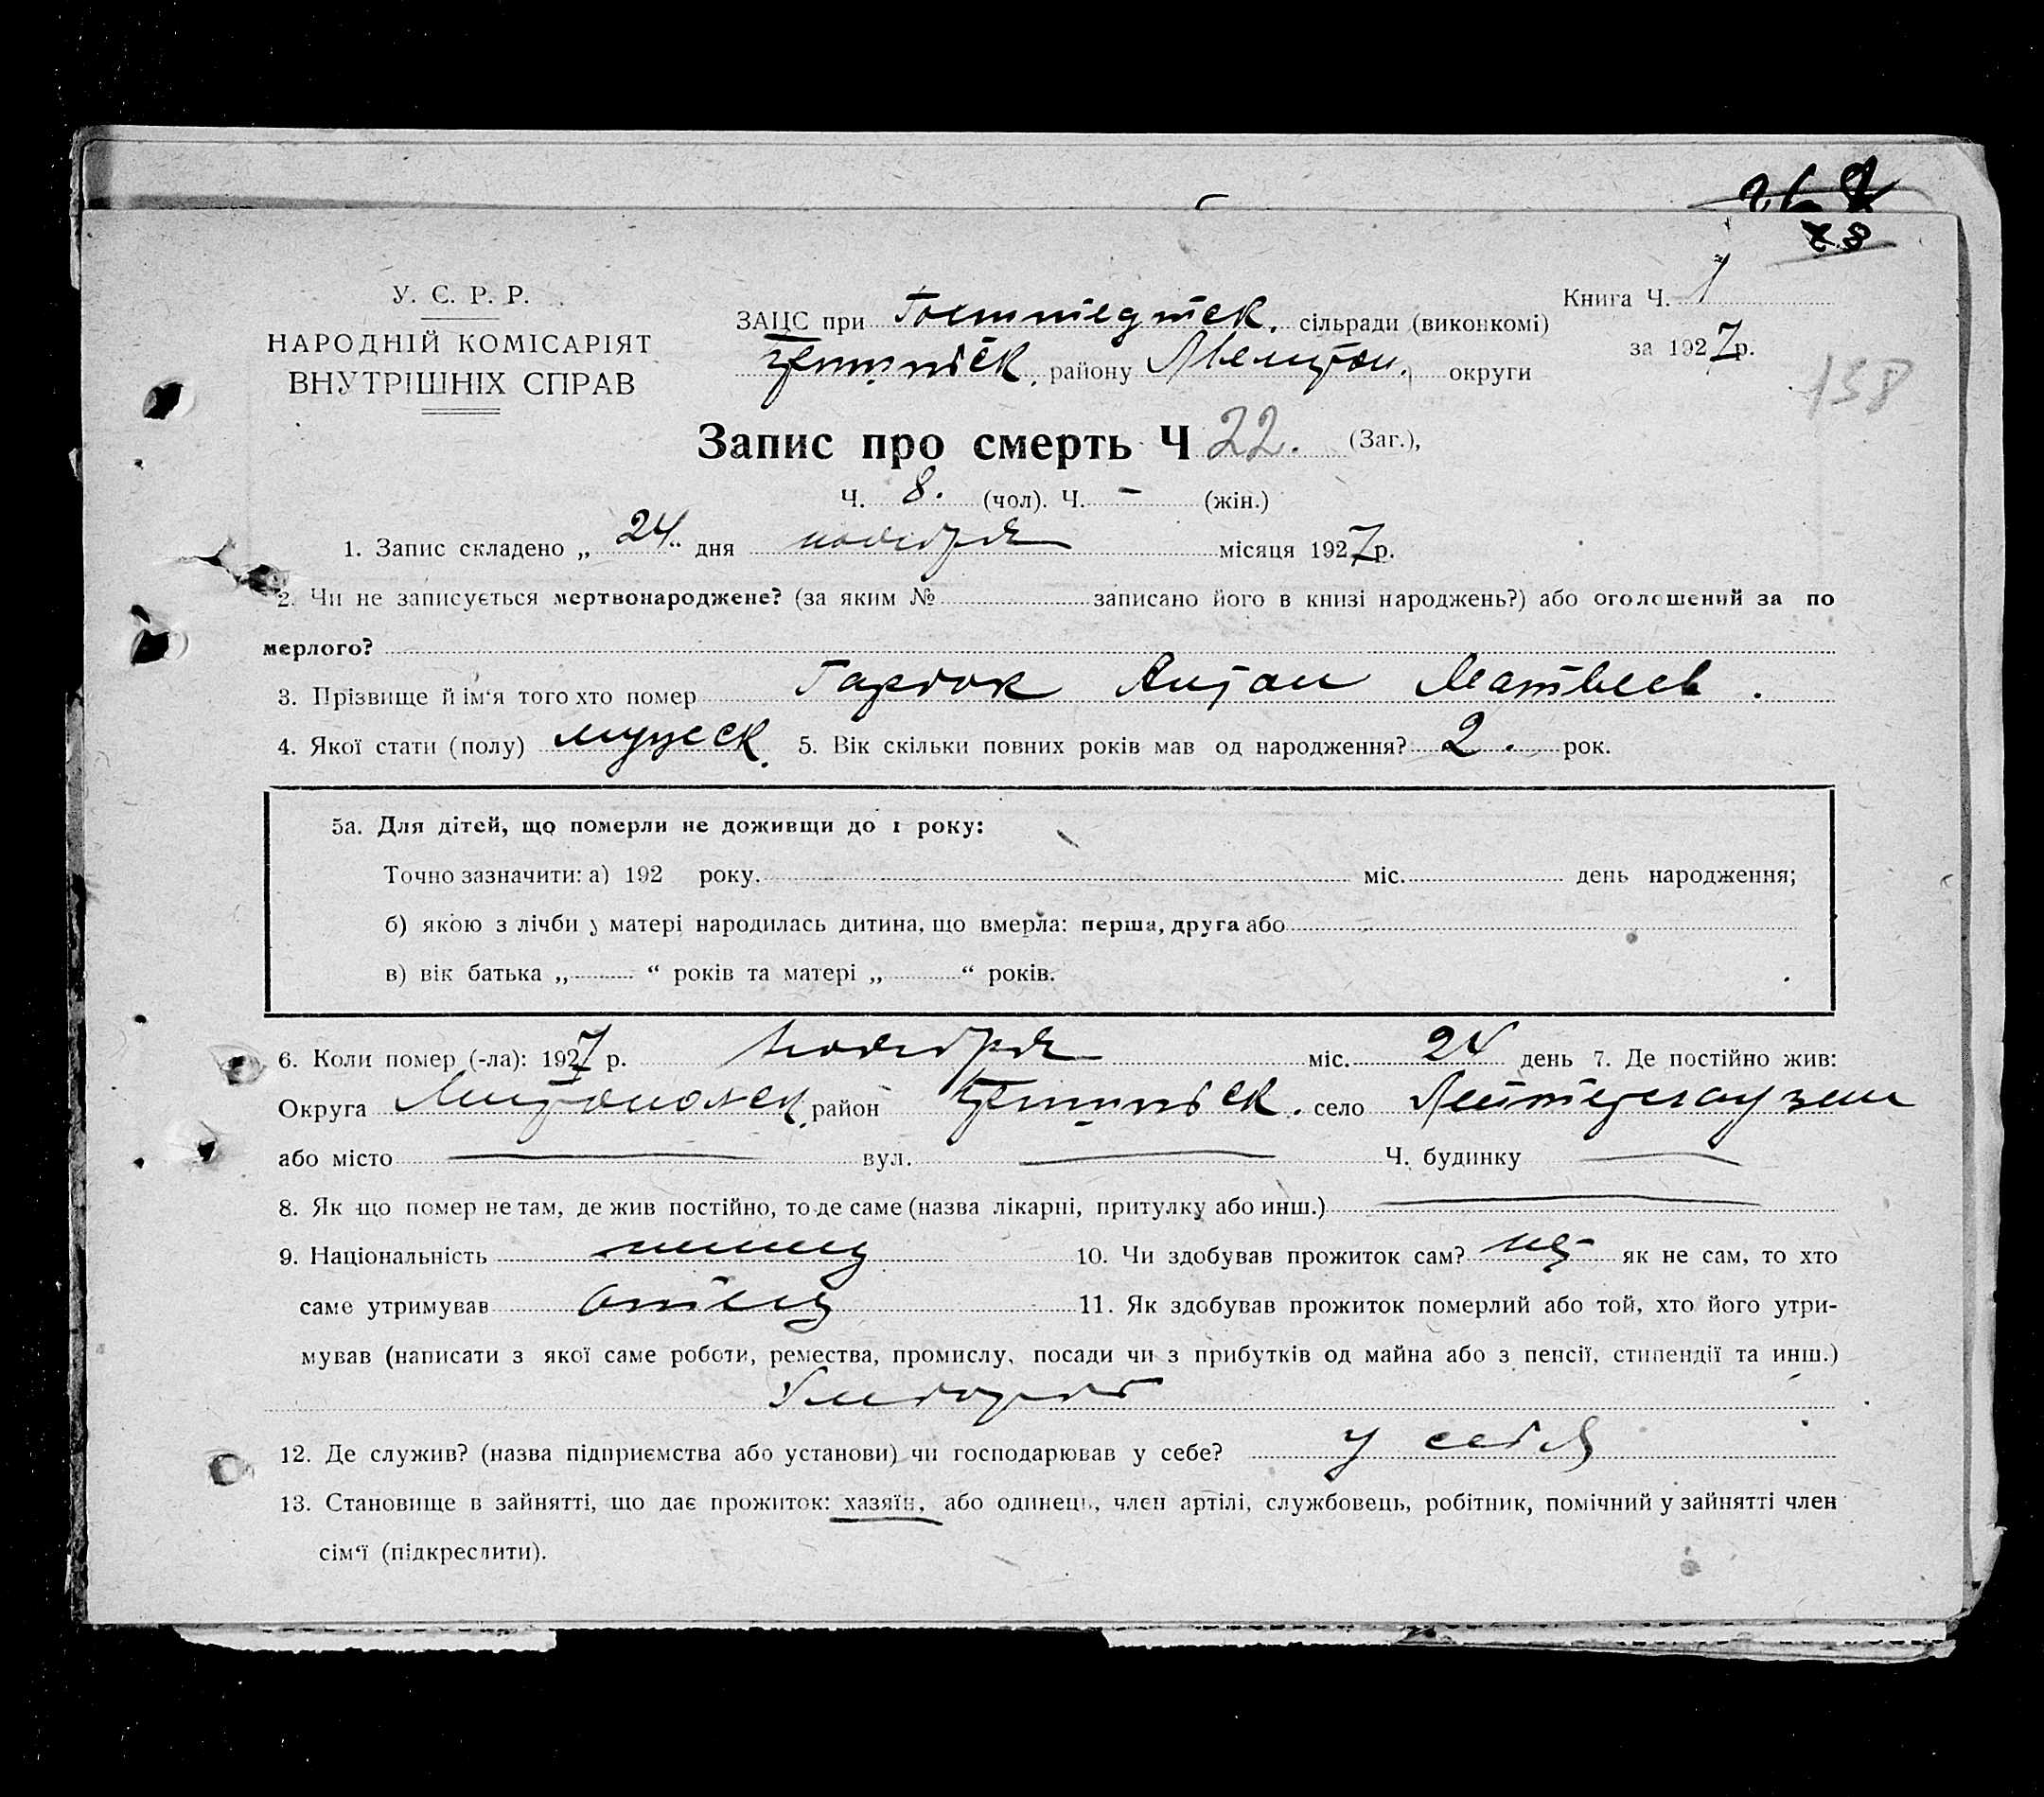 Книга Ч. 1
У. С. Р. Р.
НАРОДНІЙ КОМІСАРІЯТ
ВНУТРІШНІХ СПРАВ
ЗАЦС при сільради (виконкомі)
за 1927р.
району округи
138
Запис про смерть Ч 22. (Заг.),
Ч. 8. (чол). Ч. – (жін.)
1. Запис складено „ 24 “ дня ноября місяця 1927р.
2. Чи не записується мертвонароджене? (за яким № записано його в книзі народжень?) або оголошений за по
мерлого?
3. Прізвище й ім‘я того хто помер Антон Матвеев.
4. Якої стати (полу) мужеск. 5. Вік скільки повних років мав од народження? 2. рок.
5а. Для дітей, що померли не доживщи до 1 року:
Точно зазначити: а) 192 року. міс. день народження;
б) якою з лічби у матері народилась дитина, що вмерла: перша, друга або
в) вік батька „ “ років та матері „ “ років.
6. Коли помер (-ла): 1927 р. ноября міс. 24 день 7. Де постійно жив:
Округа район село
або місто — вул. — Ч. будинку —
8. Як що помер не там, де жив постійно, то де саме (назва лікарні, притулку або инш.) —
9. Національність немец 10. Чи здобував прожиток сам? нет як не сам, то хто
саме утримував отец 11. Як здобував прожиток померлий або той, хто його утри-
мував (написати з якої саме роботи, ремества, промислу, посади чи з прибутків од майна або з пенсії, стипендії та инш.)
Хлебороб
12. Де служив? (назва підприємства або установи) чи господарював у себе? у себя
13. Становище в зайнятті, що дає прожиток: хазяїн, або одинець, член артілі, службовець, робітник, помічний у зайнятті член
сім‘ї (підкреслити).